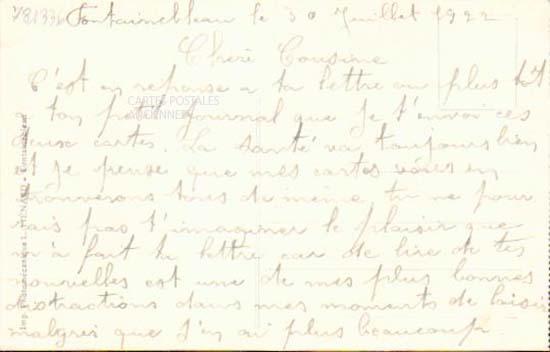 V81336 Fontainebleau le 30 Juillet 1922
Chère Cousine
C'est en reponse a ta lettre au plus tôt
ton petit journal que je t'envoi ces
deux cartes. La santé va toujours bien
et je pense que mes cartes vous en
trouverons tous de même, tu ne pour
rais pas t'imaginer le plaisir que
m'a fait ta lettre car de lire de tes
nouvelles est une de mes plus bonnes
distractions dans mes moments de loisir
malgrés que j'en ai plus beaucoup
CARTES POSTALES
ANCIENNES
Imp. Photomécanique L. MÉNARD - Fontainebleau